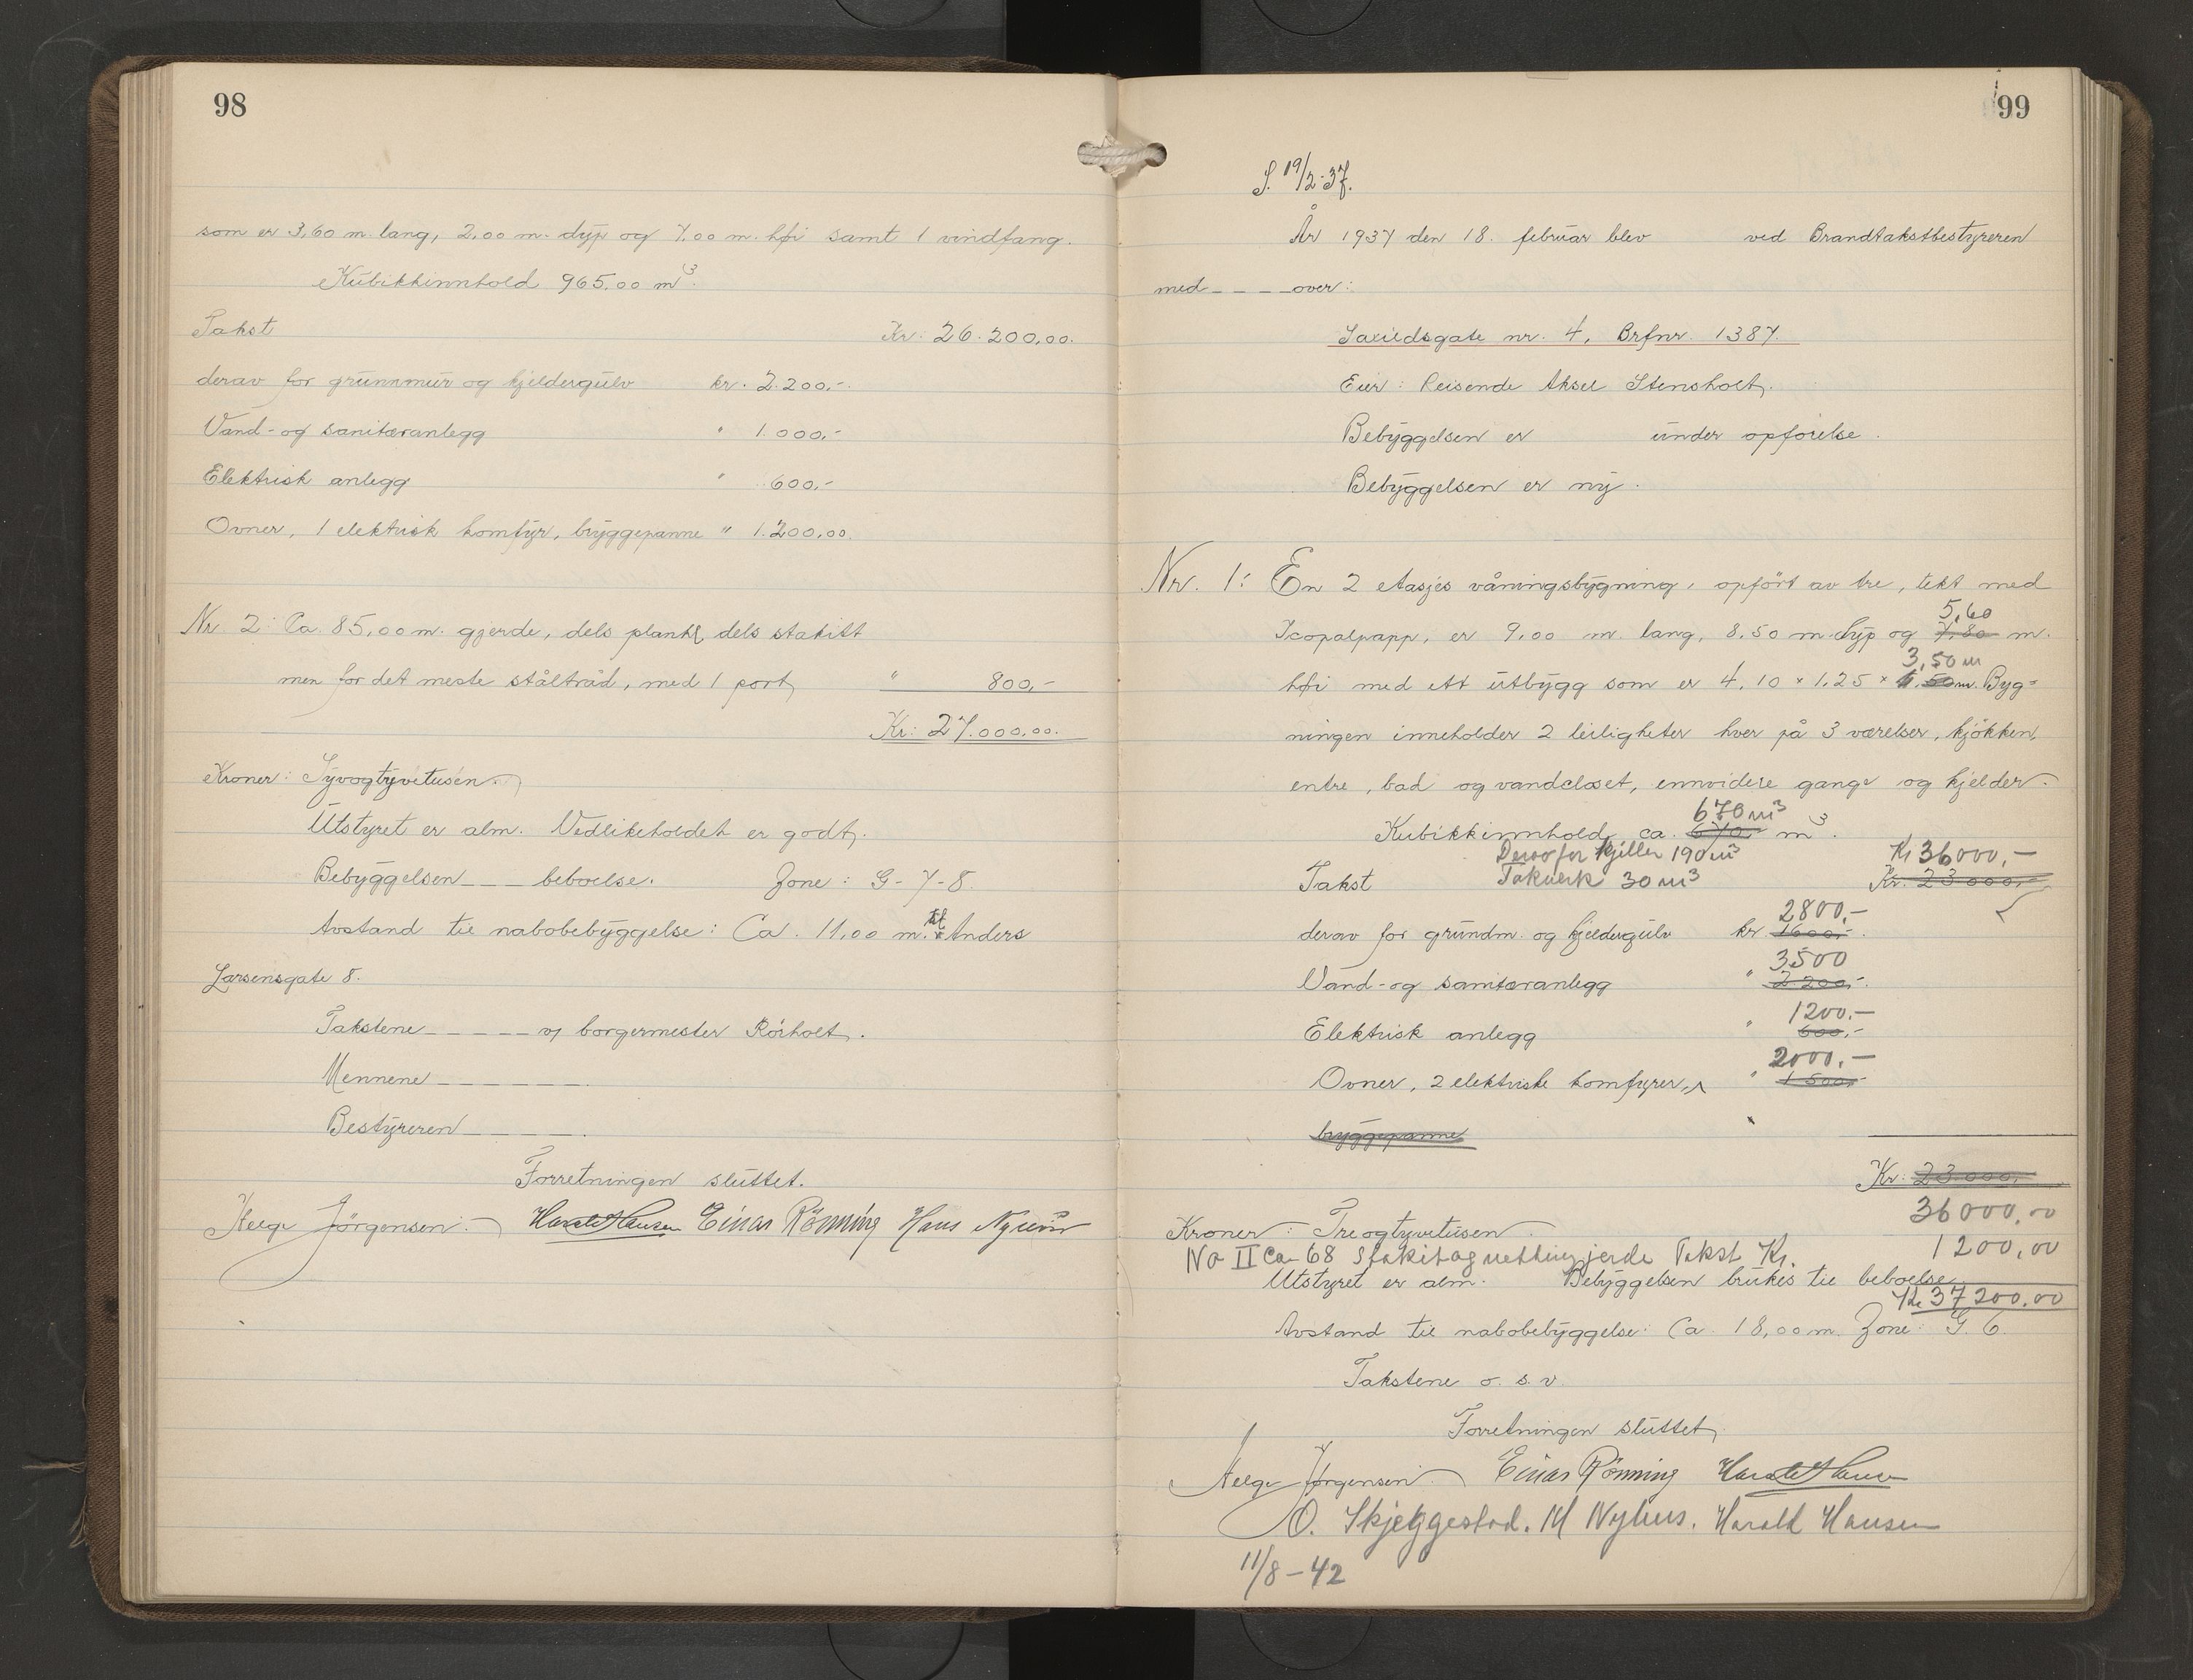 98
som er 3,60 m. lang, 2,00 m. dyp og 7,00 m. høi samt 1 vindfang.
Kubikkinnhold 965,00 m³.
Takst Kr. 26.200,00.
derav for grunnmur og kjeldergulv kr. 2.200,-.
Vand- og sanitæranlegg " 1.000,-
Elektrisk anlegg " 600,-
Ovner, 1 elektrisk komfyr, bryggepanne " 1.200,00.
Nr 2: Ca. 85,00 m. gjerde, dels plank, dels stakitt
men for det meste ståltråd, med 1 port, " 800,-
Kr: 27.000,00.
Kroner: Syvogtyvetusen.
Utstyret er alm. Vedlikeholdet er godt.
Bebyggelsen _ _ _ beboelse. Zone: G-7-8.
Avstand til nabobebyggelse: Ca. 11,00 m. til Anders
Larsensgate 8.
Takstene _ _ _ _ _ v/ borgermester Rörholt.
Mennene _ _ _ _ _ _ _.
Bestyreren _ _ _ _ _.
Forretningen sluttet.
Helge Jørgensen. Harald Hansen Einar Rönning Hans
99
S. 19/2-37.
År 1937 den 18. februar blev ved Brandtakstbestyreren
med _ _ _ _ over:
Saxildsgate nr. 4, Brfnr. 1387.
Eier: Reisende Aksel Stensholt.
Bebyggelsen er under opførelse.
Bebyggelsen er ny.
Nr. 1: En 2 etasjes våningsbygning, opført av tre, tekt med
5,60
Icopalpapp, er 9,00 m. lang, 8,50 m. dyp og 7,80 m.
3,50 m
høi med ett utbygg som er 4,10 × 1,25 × 50 m. Byg=
ningen inneholder 2 leiligheter hver på 3 værelser, kjøkken,
entre, bad og vandcloset, ennvidere gange og kjelder.
670 m³
Kubikkinnhold, ca. 670, m³.
Derav for kjeller 190 m³ Kr 36000,-
Takst Takverk 30 m³ Kr. 23.000,-
2800,-
derav for grundm. og kjeldergulv kr 1600,-.
3500
Vand- og sanitæranlegg " 2.200,-.
1200.-
Elektrisk anlegg " 600,-
2000.-
Ovner, 2 elektriske komfyrer, " 1.500,-
bryggepanne "
Kr: 23.000,-
36000,00
Kroner: Treogtyvetusen.
No II Ca 68 Stakit og nettingjerde Takst Kr. 1200,00
Utstyret er alm. Bebyggelsen brukes til beboelse.
Kr 37200.00
Avstand til nabobebyggelse: Ca. 18,00 m. Zone G. 6.
Takstene o. s. v.
Forretningen sluttet.
Helge Jørgensen. Einar Rönning Harald Hansen
O. Skjeggestad. M Nyhus. Harald Hansen
11/8-42